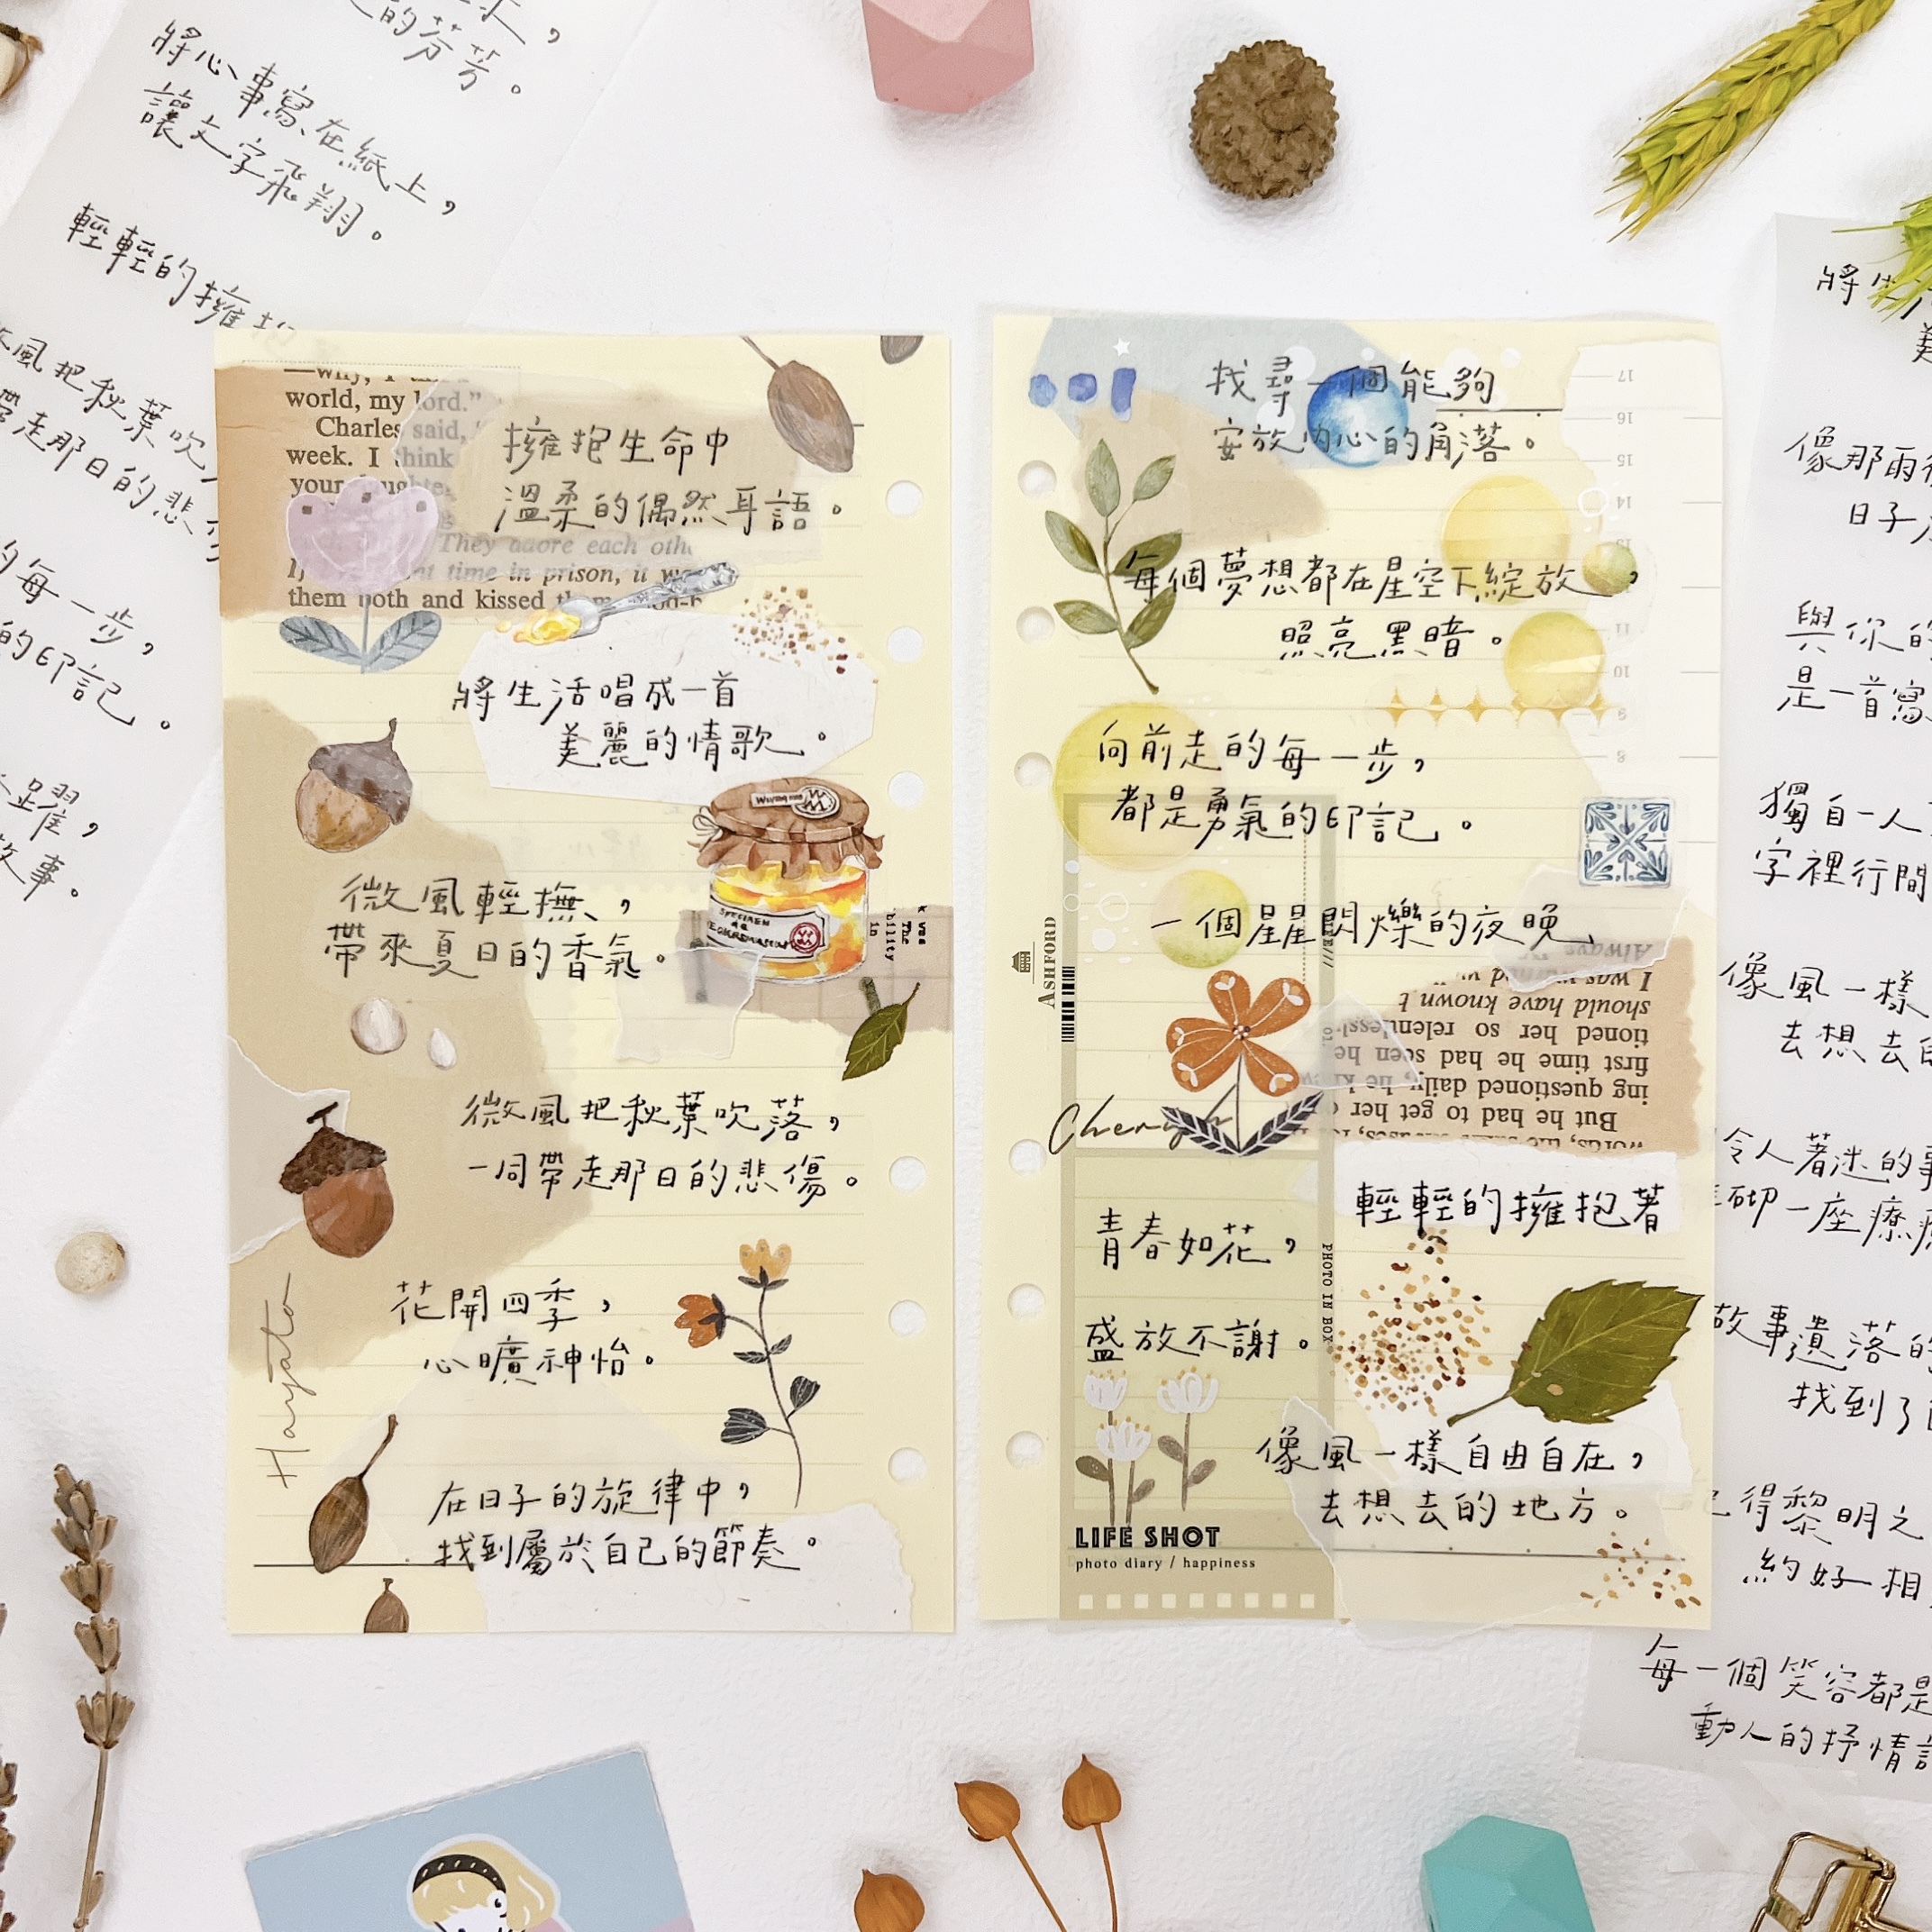 的芬芳。
將心事寫在紙上，
讓文字飛翔。
輕輕的擁抱
微風把秋葉吹
帶走那日的悲傷
的每一步，
的印記。
跳躍，
故事。
world, my lord.”
Charles said,
week. I think
They adore each
time in prison, it
them both and kissed them
擁抱生命中
溫柔的偶然耳語。
將生活唱成一首
美麗的情歌。
SPECIMEN
微風輕撫，
帶來夏日的香氣。
was
The
bility
in
微風把秋葉吹落，
一同帶走那日的悲傷。
花開四季，
心曠神怡。
Hayato
在日子的旋律中，
找到屬於自己的節奏。
找尋一個能夠
安放內心的角落。
17
16
15
14
11
10
9
8
每個夢想都在星空下綻放，
照亮黑暗。
向前走的每一步，
都是勇氣的印記。
一個星星閃爍的夜晚、
ASHFORD
But he had to get her
ing questioned daily, he
first time he had seen he
tioned her so relentlessl
should have known
I was
Always
輕輕的擁抱著
青春如花，
盛放不謝。
PHOTO IN BOX
像風一樣自由自在，
去想去的地方。
LIFE SHOT
photo diary / happiness
將生
像那雨
日子
與你的
是一首寫
獨自一人
字裡行間
像風一樣
去想去的
令人著迷的事
砌一座療
故事遺落的
找到了
記得黎明之
約好相
每一個笑容都是
動人的抒情